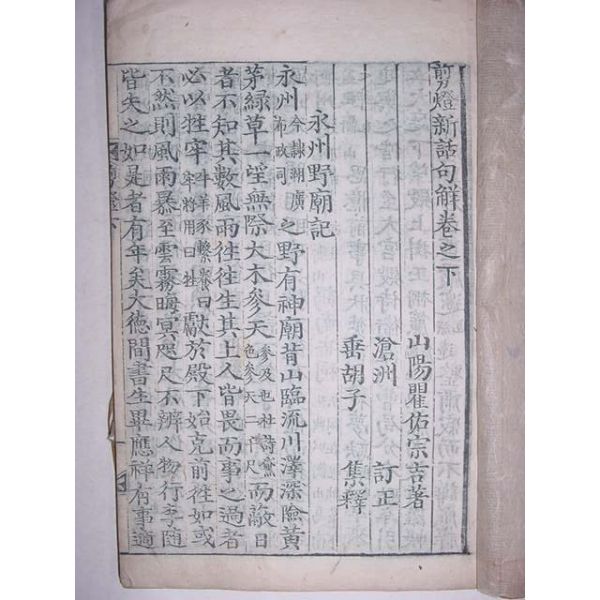 剪燈新話句解卷之下
山陽瞿佑宗吉著
滄洲 訂正
垂胡子 集釋
永州野廟記
永州今隷湖廣布政司之野有神廟背山臨流川澤深險黃
茅綠草一望無際大木參天參及也杜詩黛色參天二千尺而蔽日
者不知其數風雨往往生其上人皆畏而事之過者
必以牲牢牛羊豕繫養曰牢將用曰牲獻於殿下始克前徃如或
不然則風雨暴至雲霧晦冥咫尺不辨人物行李隨
皆失之如是者有年矣大德間書生畢應祥有事適